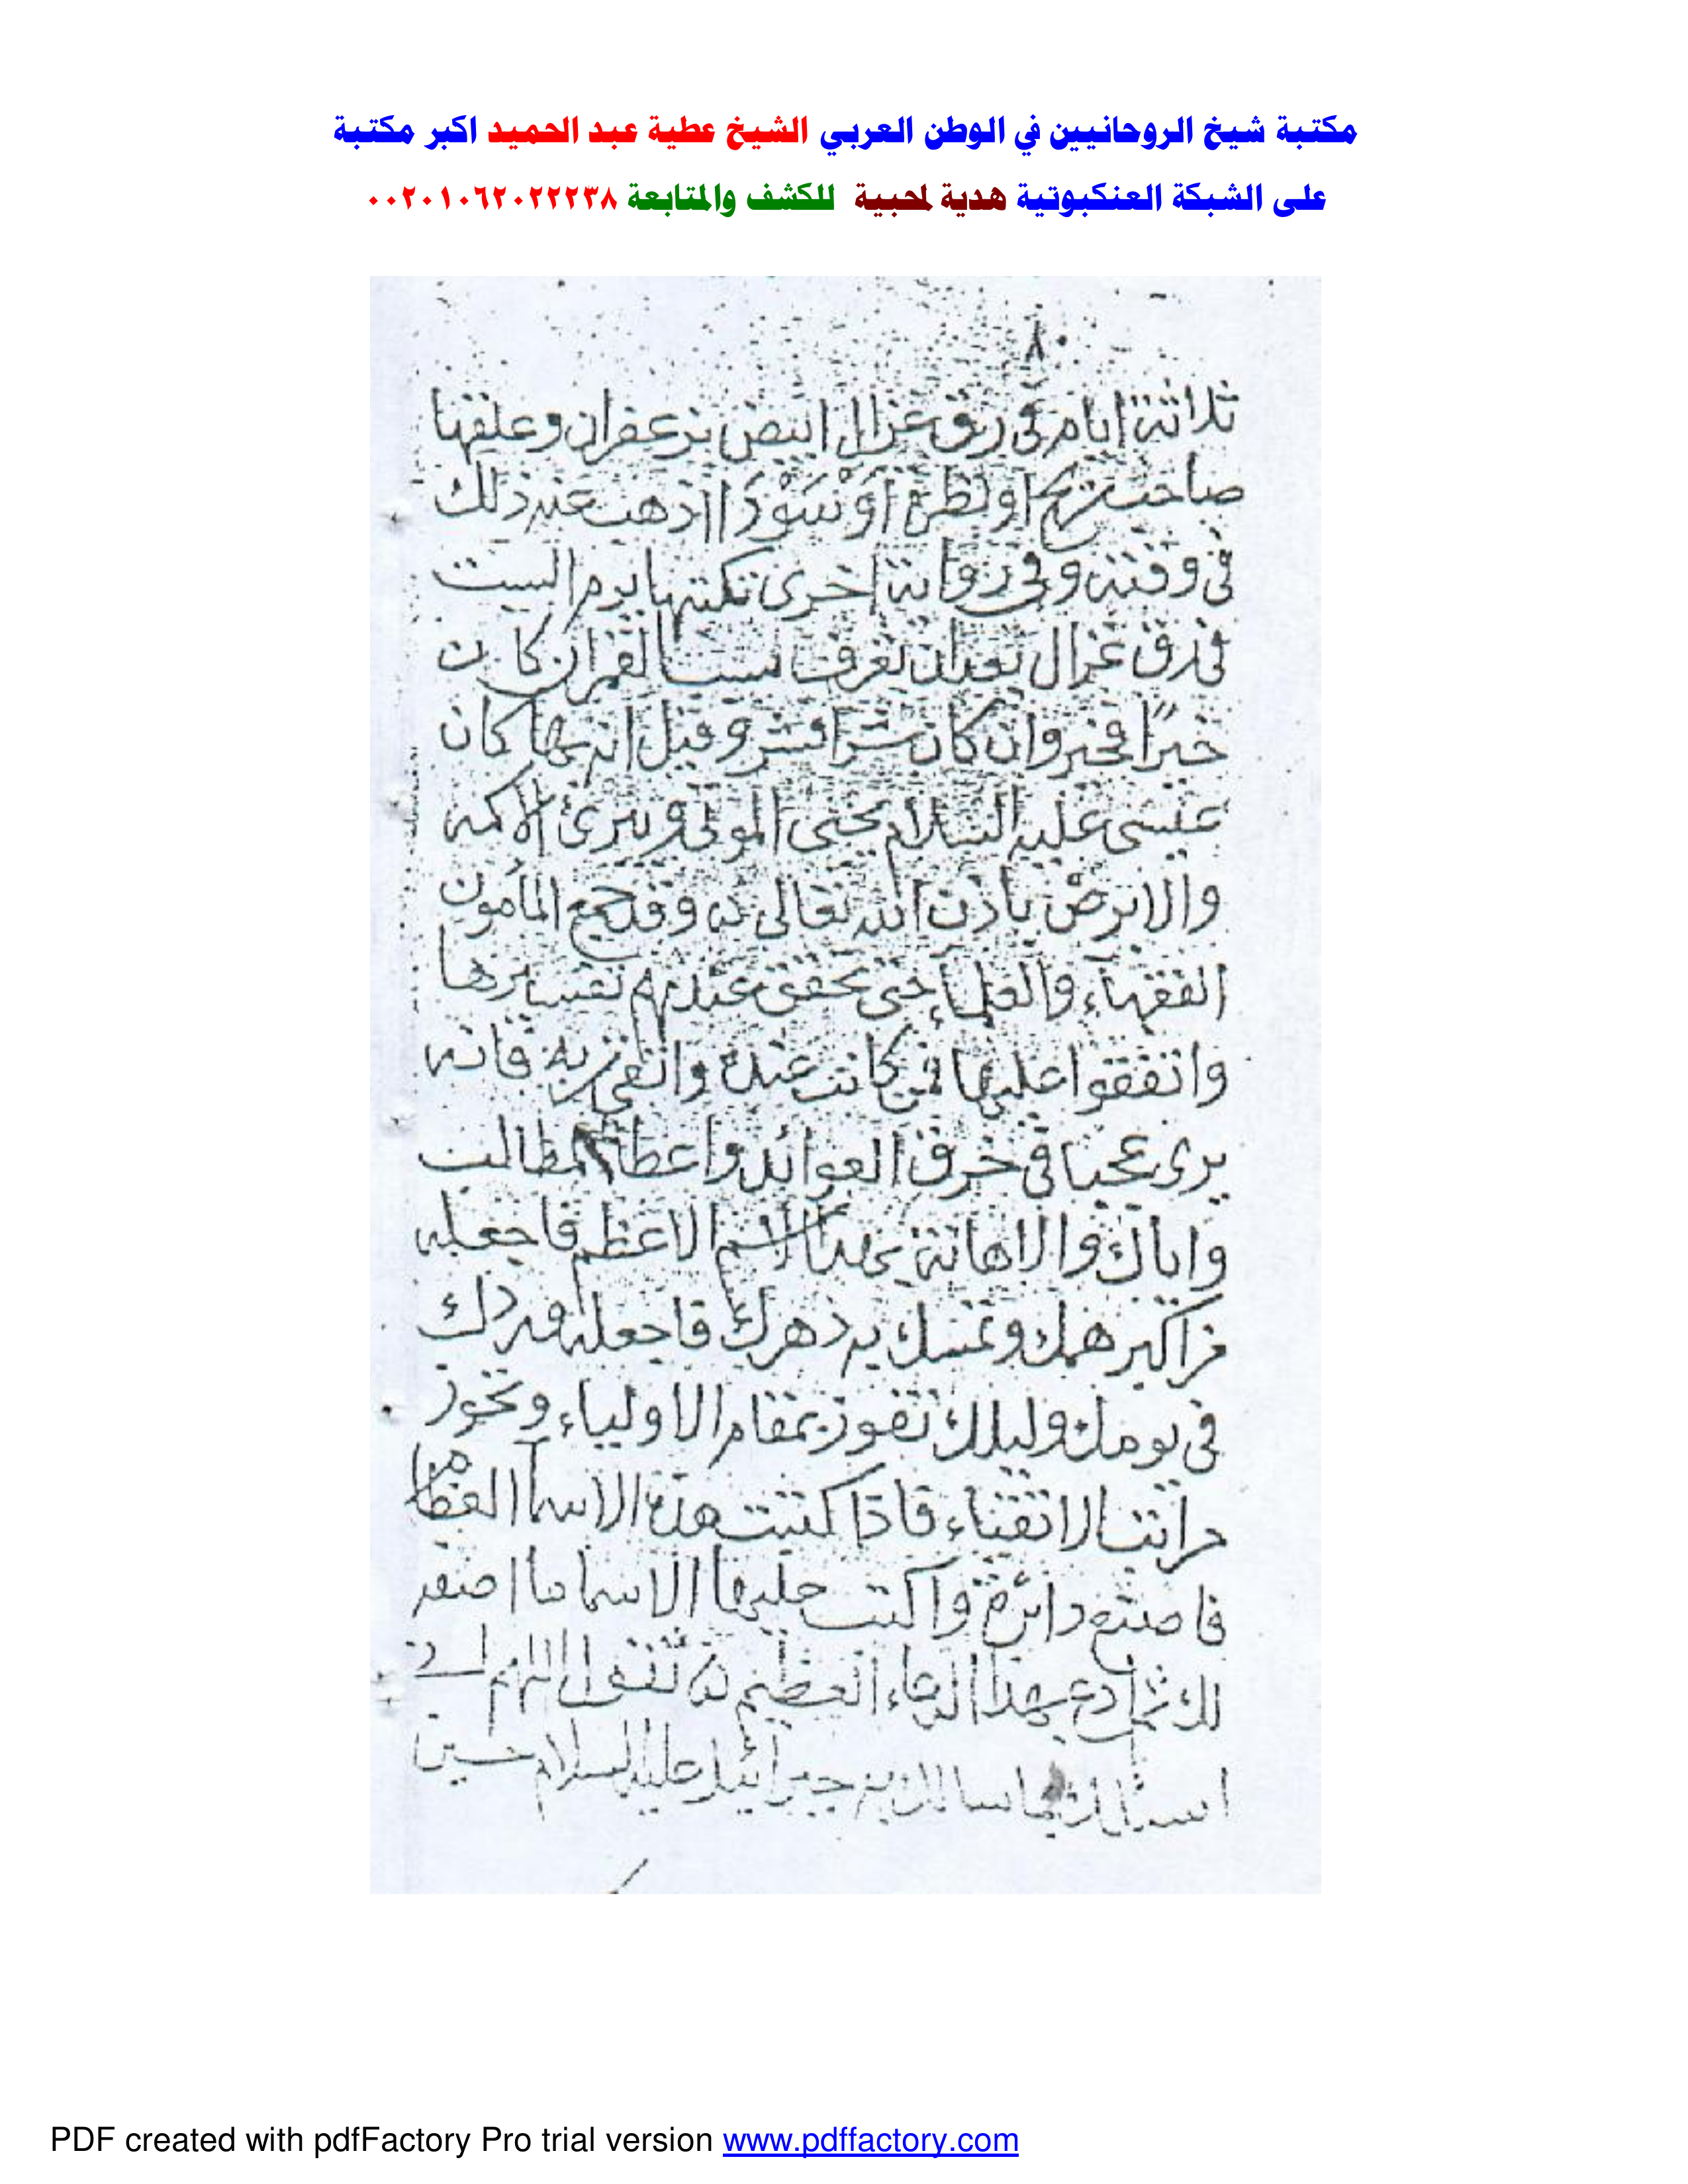 مكتبة شيخ الروحانيين في الوطن العربي الشيخ عطية عبد الحميد اكبر مكتبة
على الشبكة العنكبوتية هدية لمحبية للكشف والمتابعة ٠٠٢٠١٠٦٢٠٢٢٢٣٨
٨٠
ثلاثة ايام في رق غزال ابيض بزعفران وعلقها
صاحب ريح او نظرة أو اذهب عنه ذلك
في وقته وفي رواية اخرى تكتبها يوم السبت
في رق غزال بعد ان تعرف القمر ان كان
خيراً فخير وان كان شرا فشر وقيل انه بها كان
عيسى عليه السلام يحيى الموتى ويبرئ الاكمه
والابرص باذن الله تعالى وقد جمع المأمون
الفقهاء والعلماء حتى تحقق عندهم تفسيرها
واتفقوا عليها فمن كانت عنده واتقى ربه فانه
يرى عجبا في خرق العوائد واعطاء المطالب
واياك والاهانة بهذا الاسم الاعظم فاجعله
من اكبر همك وتمسك به دهرك فاجعله وردك
في يومك وليلك تفوز بمقام الاولياء وتحوز
مراتب الاتقياء فاذا كتبت هذه الاسما العظام
فاصنع دائرة واكتب عليها الاسما ما اصنعه
لك ثم ادع بهذا الدعاء العظيم تقول اللهم اني
اسئلك بما سالك به جبرائيل عليه السلام حين
PDF created with pdfFactory Pro trial version www.pdffactory.com